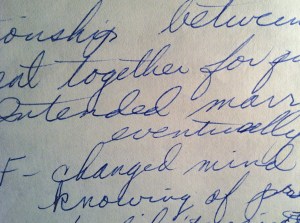 ionship between
eat together for
Intended marr
eventually
F - changed mind
knowing of